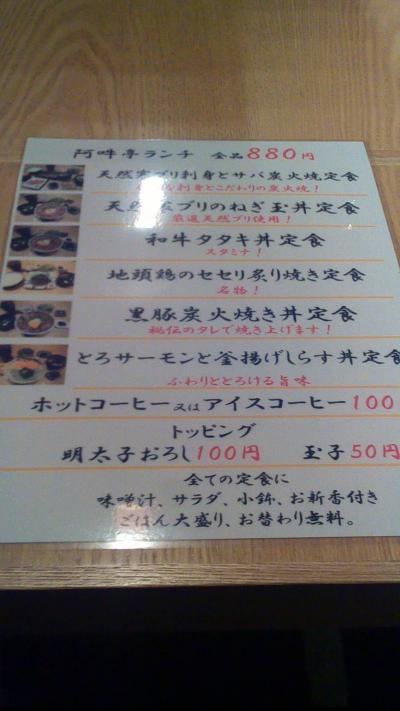 阿吽亭ランチ 全品880円
天然寒ブリ刺身とサバ炭火焼定食
刺身とこだわりの炭火焼!
天然寒ブリのねぎ玉丼定食
厳選天然ブリ使用!
和牛タタキ丼定食
スタミナ!
地頭鶏のセセリ炙り焼き定食
名物!
黒豚炭火焼き丼定食
秘伝のタレで焼き上げます!
とろサーモンと釜揚げしらす丼定食
ふわりととろける旨味
ホットコーヒー又はアイスコーヒー100
トッピング
明太子おろし100円 玉子50円
全ての定食に
味噌汁、サラダ、小鉢、お新香付き
ごはん大盛り、お替わり無料。